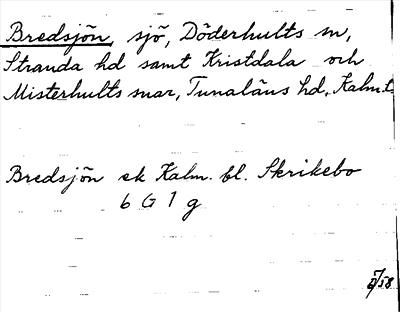 Bredsjön, sjö, Döderhults sn,
Stranda hd samt Kristdala och
Misterhults snar, Tunaläns hd, Kalm.
Bredsjön ek Kalm. bl. Skrikebo
6 G 1 g
58